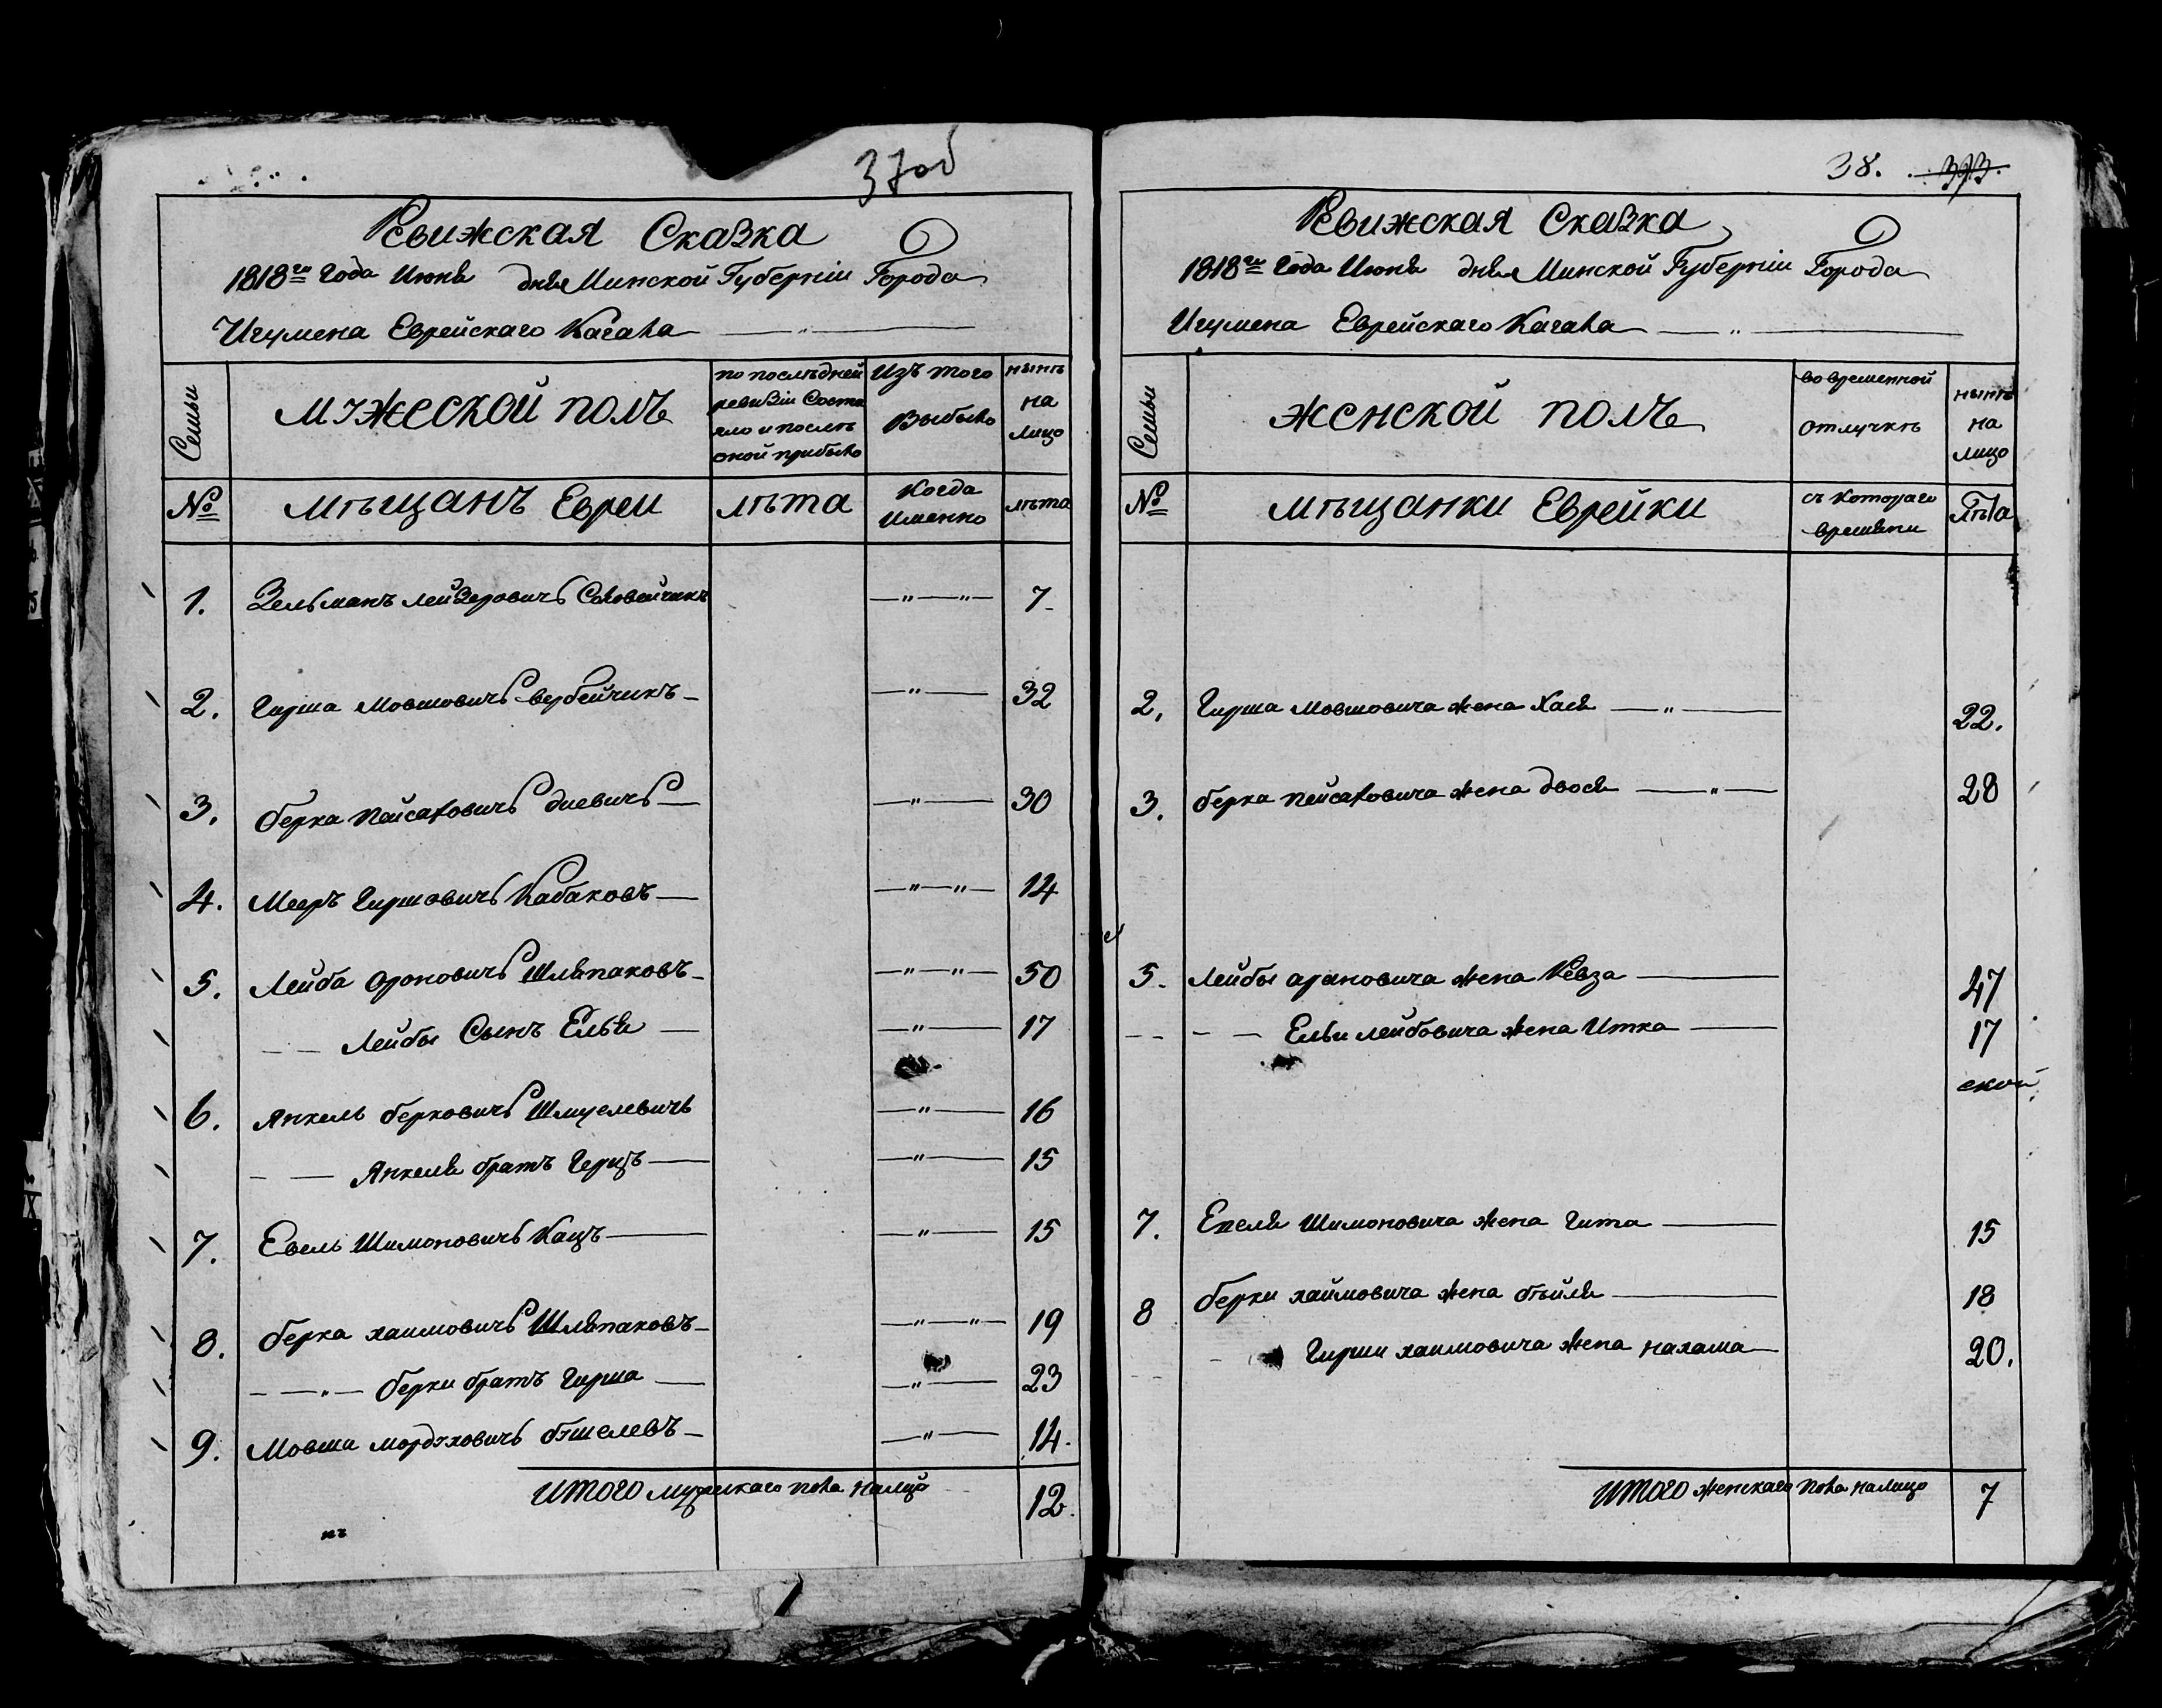 37об
Ревижская Сказка
1818го Года Июня дня Минской Губернiи Города
Игумена Еврейскаго Кагала
Семьи
мужеской полъ
по послѣдней
ревизiи Состо
яло и послѣ
оной прибыло
Изъ того
Выбыло
нынѣ
на
лицо
№
мѣщанъ Евреи
лѣта
Когда
Именно
лѣта
1. Зельманъ Лейзеровичъ Соловейчикъ 7
2. Гирша Мовшовичъ вербейчикъ 32
3. берка пейсаховичъ диевичъ 30
4. Мееръ Гиршовичъ Кабаковъ 14
5. Лейба ороновичъ Шляпаковъ 50
Лейбы Сынъ Елья 17
6. Янкель берковичъ Шмуелевичъ 16
Янкеля братъ Герцъ 15
7. Евель Шимоновичъ Кацъ 15
8. берка хаимовичъ Шляпаковъ 19
берки братъ Гирша 23
9. Мовша мордуховичъ 14.
итого мужскаго пола налицо 12.
38. 393.
Ревижская Сказка
1818го Года Июня дня Минской Губернiи Города
Игумена Еврейскаго Кагала
Семьи
женской полъ
во временной
отлучкѣ
нынѣ
на
лицо
№
мѣщанки Еврейки
съ котораго
времяни
Лѣта
2. Гирша мовшовича жена Хася 22.
3. берка пейсаховича жена двося 28
5. Лейбы арановича жена Кевза 47
Ельи лейбовича жена Итка 17
ской
7. Евеля Шимоновича жена Гита 15
8 берки хаймовича жена бѣйля 18
Гирши хаимовича жена нахама 20.
итого женскаго пола налицо 7